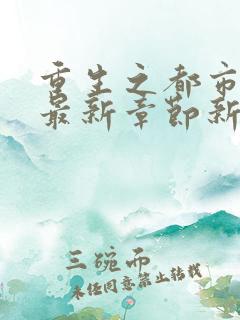 重生之都市
最新章节新
三碗面
未经同意禁止转载